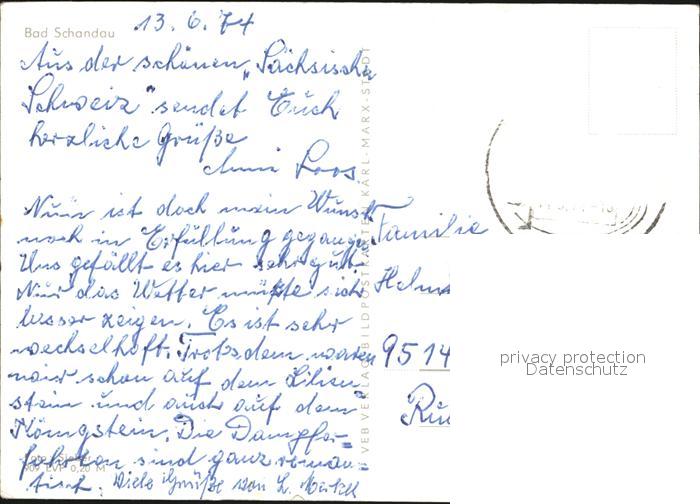 Bad Schandau
13.6.74
Aus der schönen „Sächsische
Schweiz" sendet Euch
herzliche Grüße
Anni Loos
Nun ist doch mein Wunsch
noch in Erfüllung gegangen
Uns gefällt es hier sehr gut.
Nur das Wetter müßte sich
besser zeigen. Es ist sehr
wechselhaft. Trotzdem waren
wir schon auf dem Lilien-
stein und auch auf dem
Königstein. Die Dampfer-
fahrten sind ganz roman-
tisch. Viele Grüße von L.
VEB VERLAG BILDPOSTKARTEN KARL-MARX-STADT
Familie
Helm
9514
privacy protection
Datenschutz
EVP 0,20 M